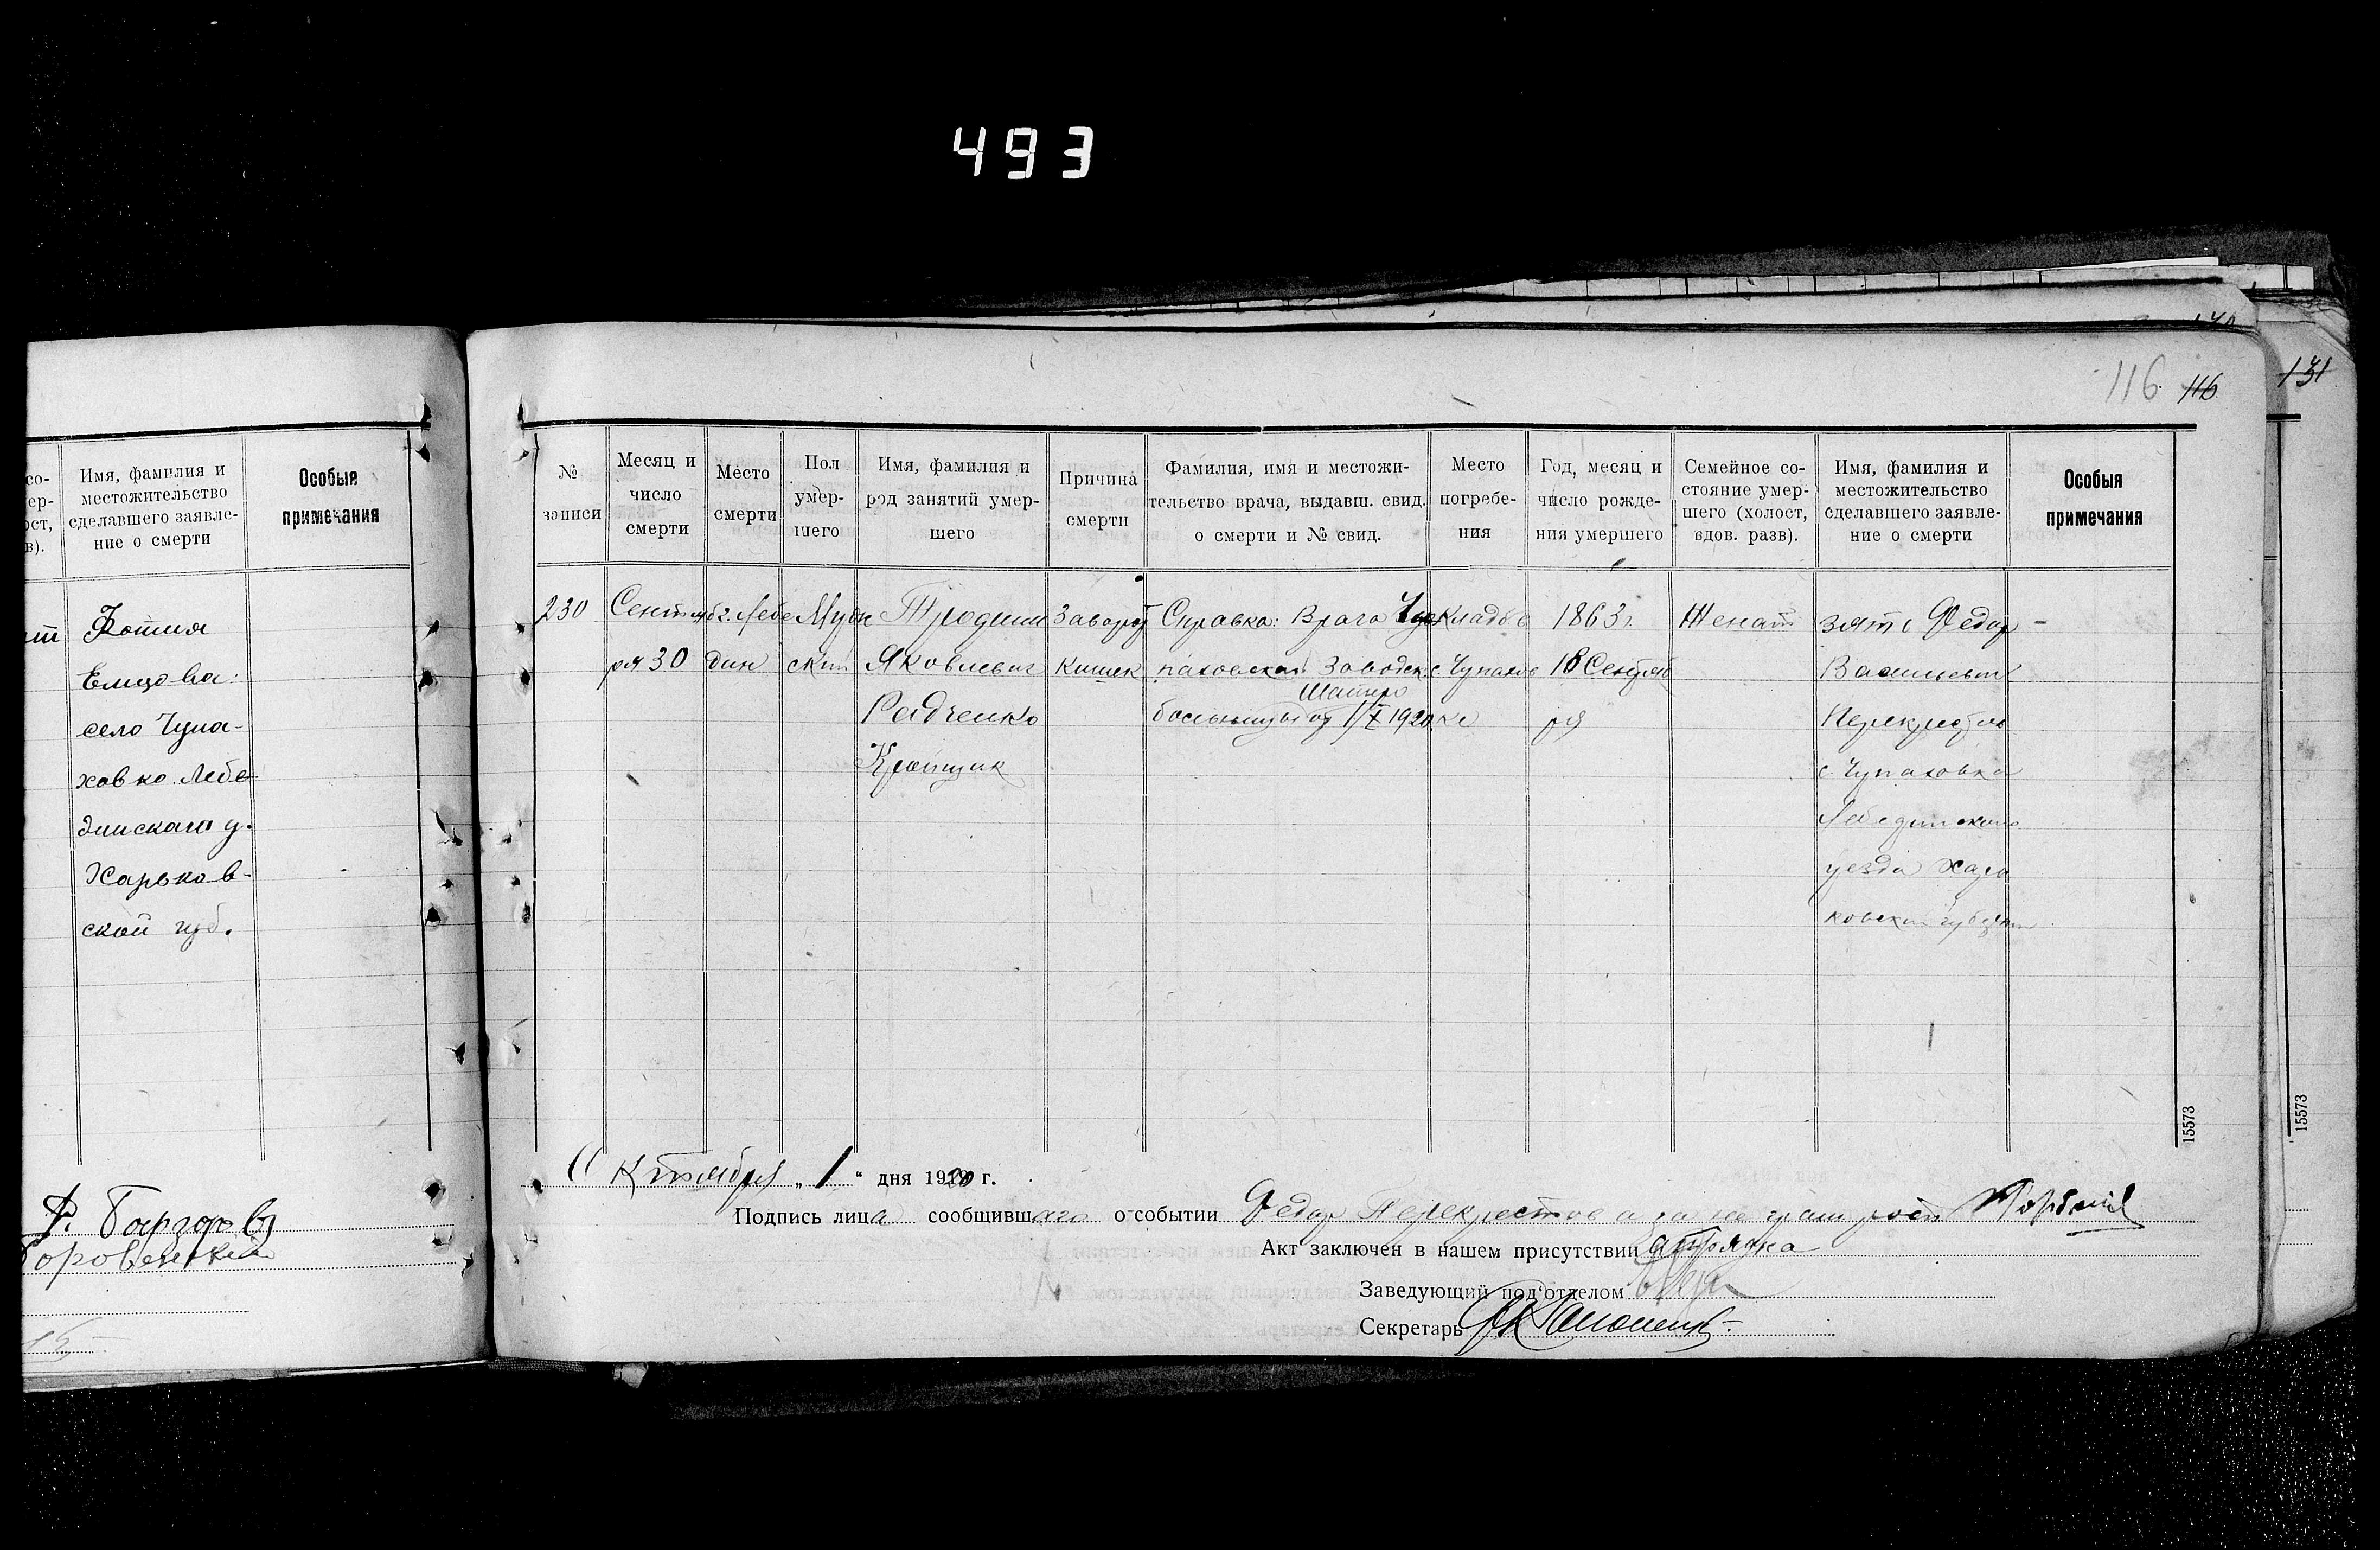 493
116 116
131
со-
ер-
ост,
в).
Имя, фамилия и
местожительство
сделавшего заявле-
ние о смерти
Особыя
примечания
Фотия
Емцова
село Чупа-
ховко Лебе-
динскаго у.
Харьков-
ской губ.
15573
№
записи
Месяц и
число
смерти
Место
смерти
Пол
умер-
шего
Имя, фамилия и
род занятий умер-
шего
Причина
смерти
Фамилия, имя и местожи-
тельство врача, выдавш. свид.
о смерти и № свид.
Место
погребе-
ния
Год, месяц и
число рожде-
ния умершего
Семейное со-
стояние умер-
шего (холост,
вдов. разв).
Имя, фамилия и
местожительство
сделавшего заявле-
ние о смерти
Особыя
примечания
230
Сентяб
ря 30
г. Лебе
дин
Муж
ской
Яковлевич
Радченко
Заворот
кишек
Справка: Врача Чу
паховской Заводск.
больницы от 1/X 1920
Кладб
с. Чупахов
ке
1863 г.
18 Сентяб
ря
Женат
зять Федор
Васильевич
Перекрестов
с. Чупаховка
Лебединскаго
уезда Харь
ковской губернии
15573
Октября „ 1 “ дня 1920 г.
Подпись лица сообщившаго о событии Федор Перекрестов а за не грам
Акт заключен в нашем присутствии
Заведующий под'отделом
Секретарь